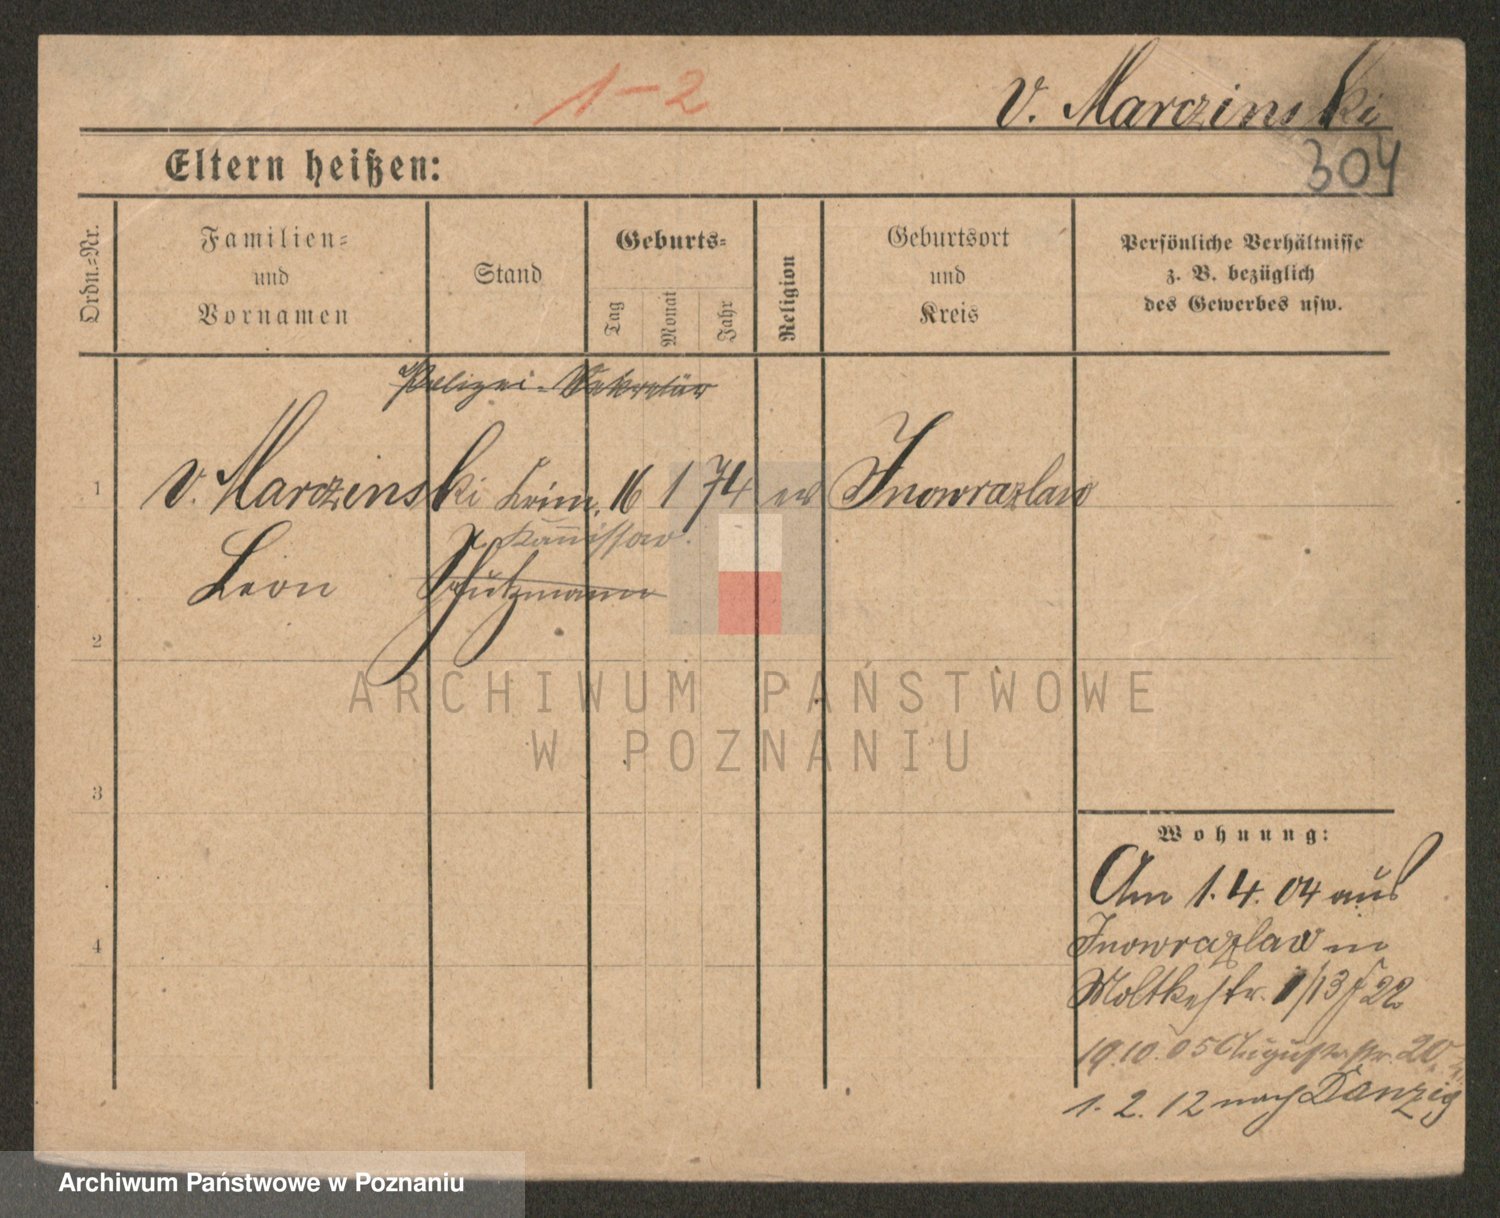 1-2
v. Marczinski
Eltern heißen:
304
Ordn.-Nr.
Familien-
und
Vornamen
Stand
Geburts-
Tag
Monat
Jahr
Religion
Geburtsort
und
Kreis
Persönliche Verhältnisse
z. B. bezüglich
des Gewerbes usw.
Polizei-Sekretär
1 v. Marczinski Krim. 16 1 74 ev Inowrazlaw
Kommissar.
Leon Schutzmann
2
3
4
Wohnung:
Am 1.4.04 aus
Inowrazlaw in
Moltkestr. 22
19.10.05 Augustastr. 20
1.2.12 nach Danzig
ARCHIWUM PAŃSTWOWE
W POZNANIU
Archiwum Państwowe w Poznaniu